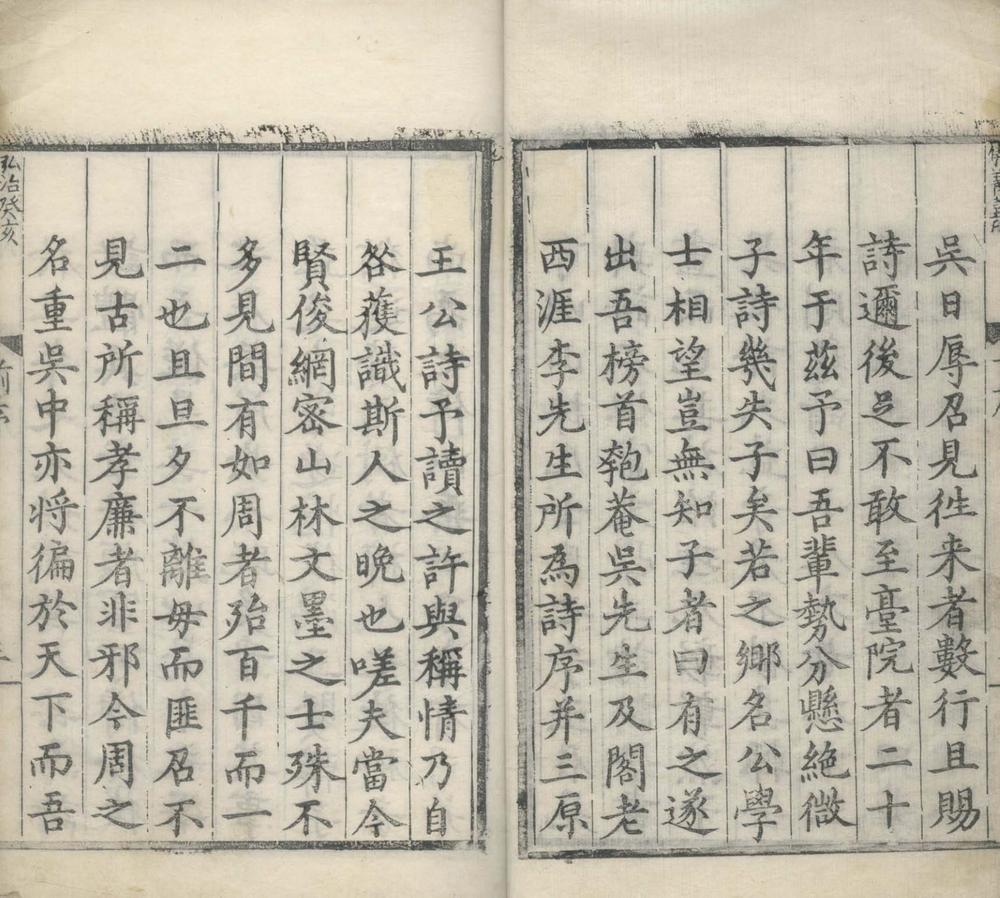 吳日辱召見徃来者數行且賜
詩邇後足不敢至臺院者二十
年于茲予曰吾輩勢分懸絶微
子詩幾失子矣若之鄉名公學
士相望豈無知子者曰有之遂
出吾榜首匏菴吳先生及閣老
西涯李先生所為詩序并三原
王公詩予讀之許與稱情乃自
咎蒦識斯人之晚也嗟夫當今
賢俊網宻山林文墨之士殊不
多見間有如周者殆百千而一
二也且旦夕不離毋而匪召不
見古所稱孝廉者非邪今周之
名重吳中亦将徧於天下而吾
弘治癸亥